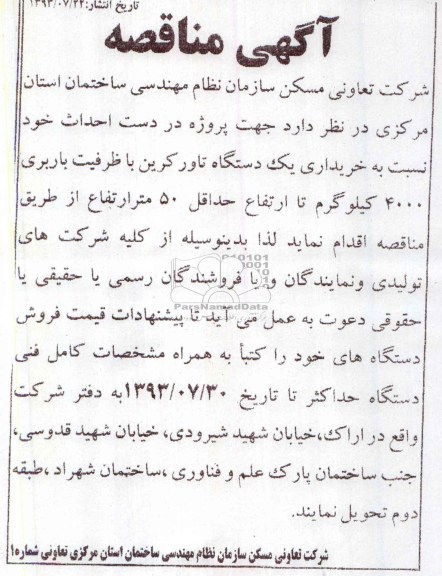 تاریخ انتشار:۱۳۹۳/۰۷/۲۲
آگهی مناقصه
شرکت تعاونی مسکن سازمان نظام مهندسی ساختمان استان
مرکزی در نظر دارد جهت پروژه در دست احداث خود
نسبت به خریداری یک دستگاه تاورکرین با ظرفیت باربری
۴۰۰۰ کیلوگرم تا ارتفاع حداقل ۵۰ مترارتفاع از طریق
مناقصه اقدام نماید لذا بدینوسیله از کلیه شرکت های
تولیدی ونمایندگان و یا فروشندگان رسمی یا حقیقی یا
حقوقی دعوت به عمل می آید تا پیشنهادات قیمت فروش
دستگاه های خود را کتبأ به همراه مشخصات کامل فنی
دستگاه حداکثر تا تاریخ ۱۳۹۳/۰۷/۳۰به دفتر شرکت
واقع در اراک،خیابان شهید شیرودی، خیابان شهید قدوسی،
جنب ساختمان پارک علم و فناوری ،ساختمان شهراد ،طبقه
دوم تحویل نمایند.
شرکت تعاونی مسکن سازمان نظام مهندسی ساختمان استان مرکزی تعاونی شماره۱
ParsNamadData